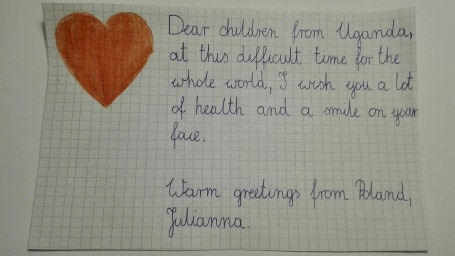 Dear children from Uganda,
at this difficult time for the
whole world, I wish you a lot
of health and a smile on your
face.
Warm greetings from Poland,
Julianna.